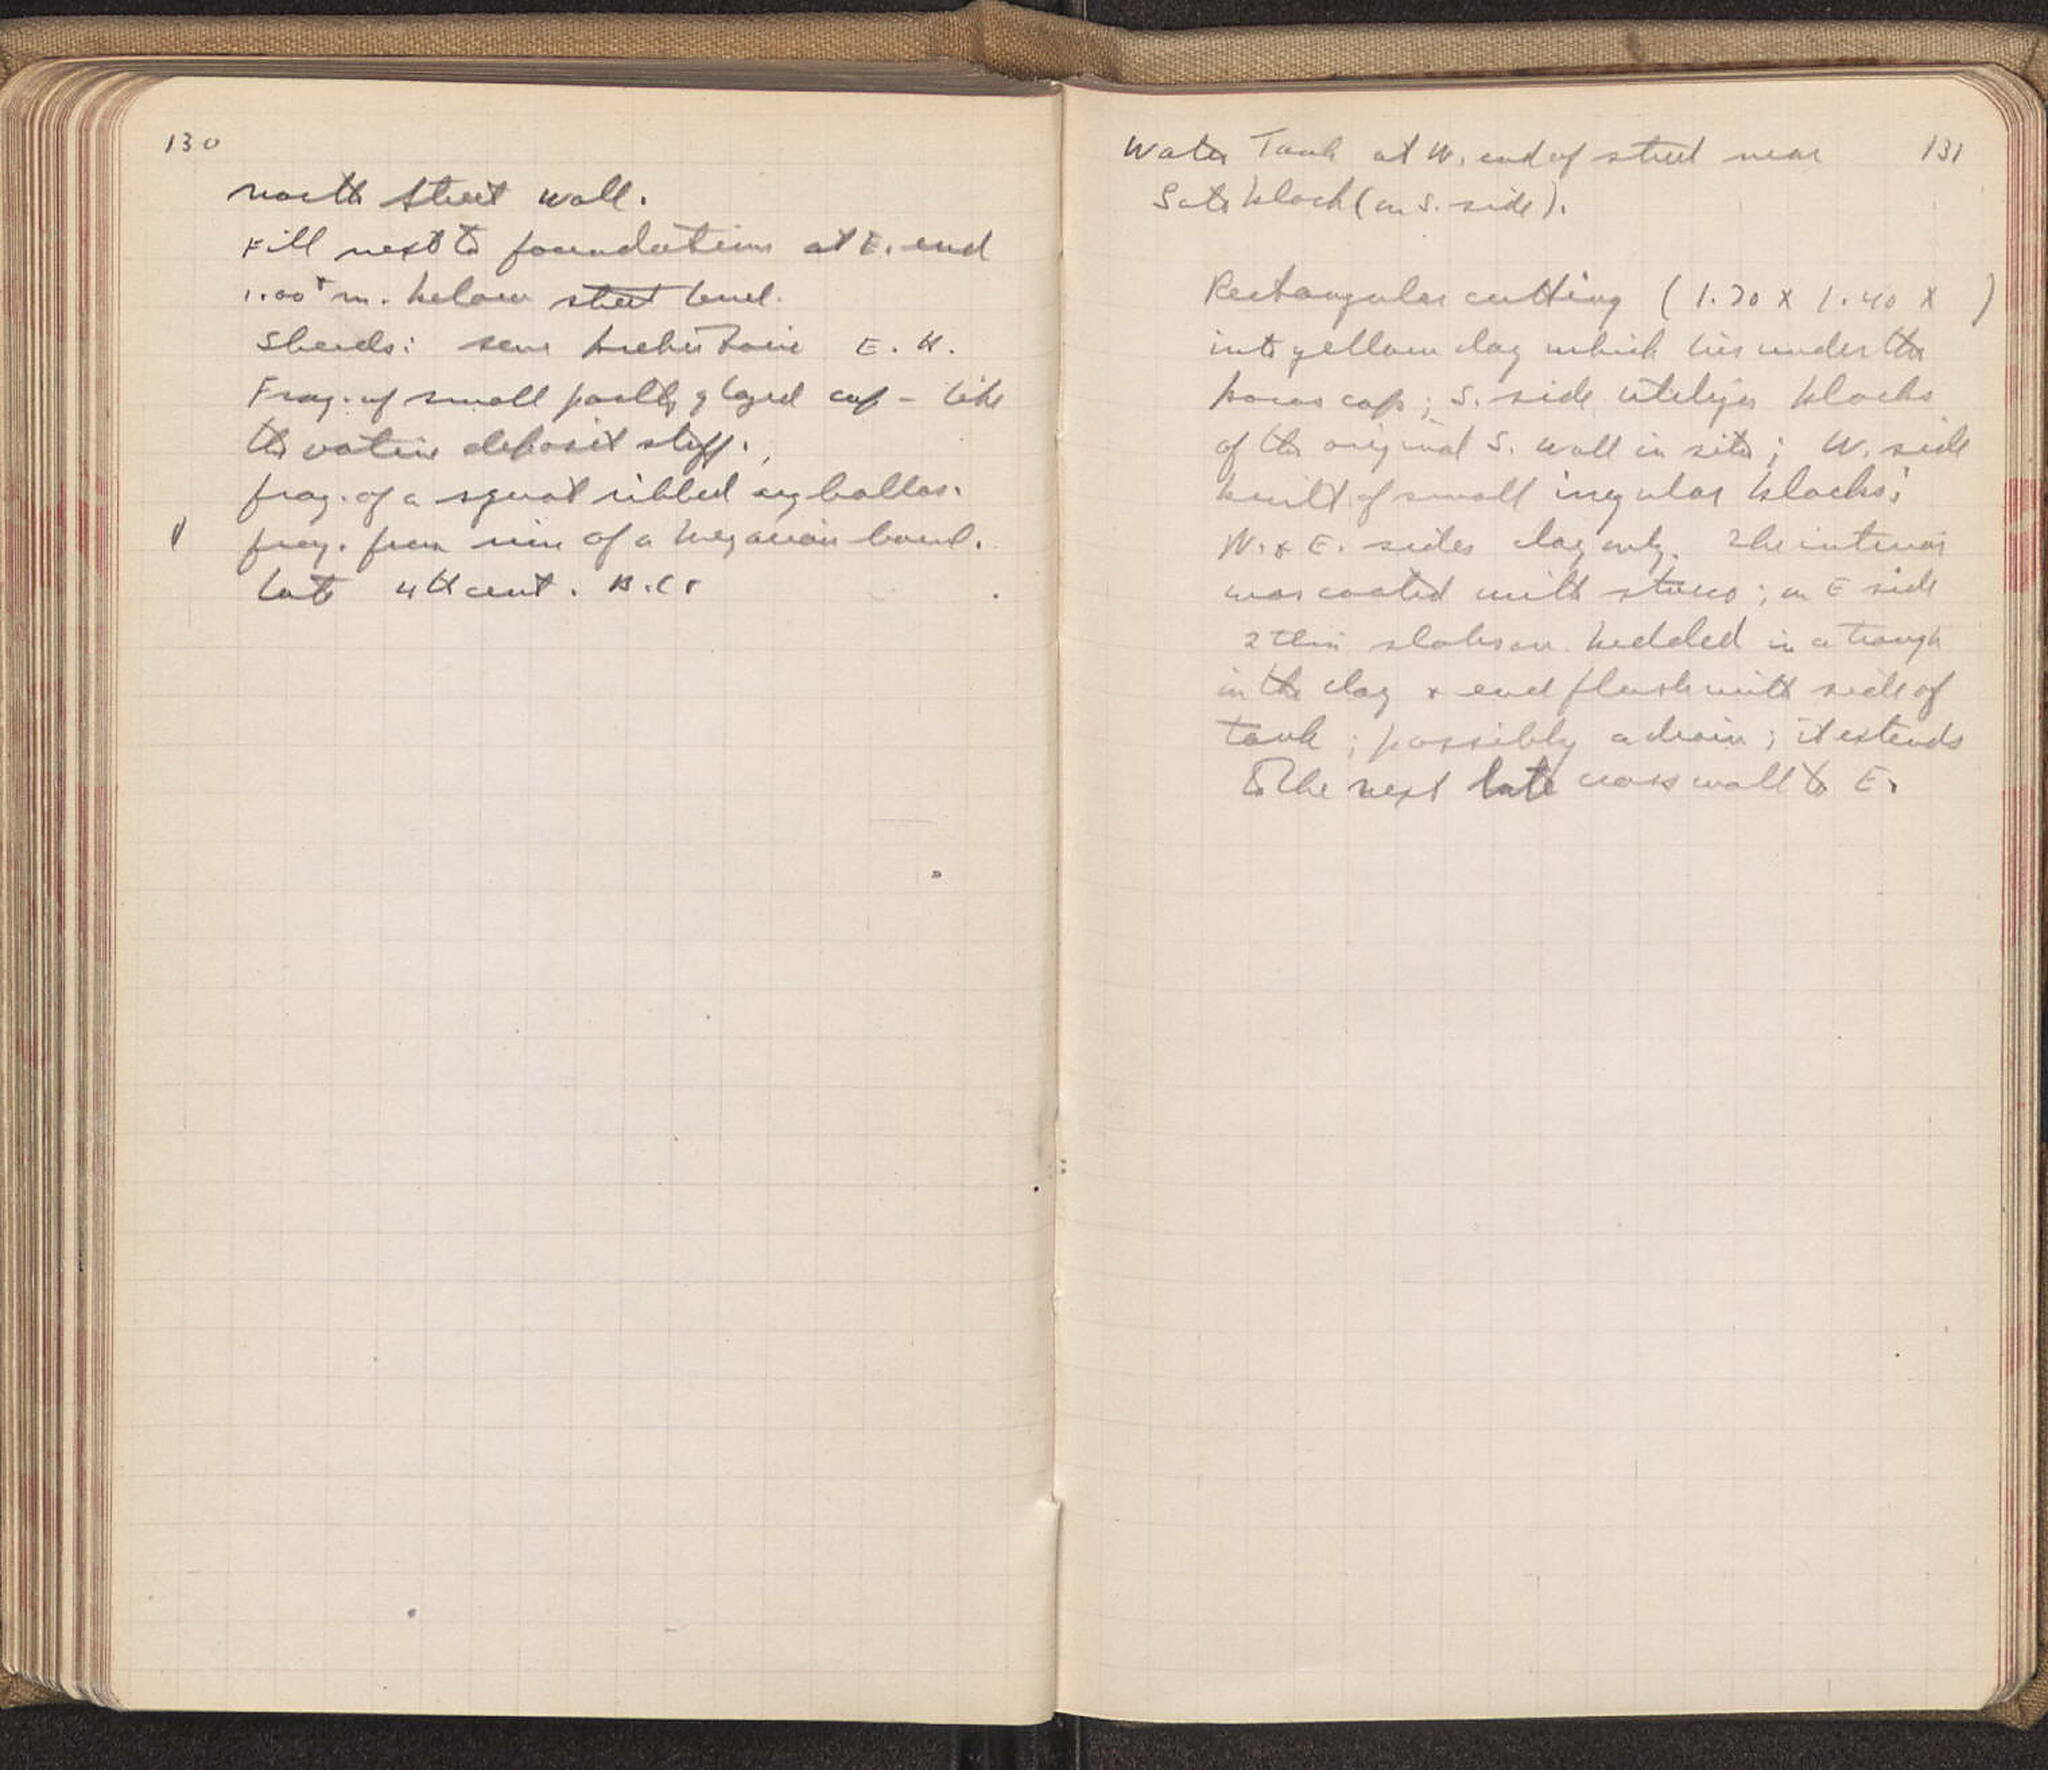 130
North Street Wall.
Fill next to foundations at E. end
1.00+ m. below street level.
Sherds: some prehistoric E. H.
Frag. of small partly glazed cup - like
the votive deposit stuff.
frag. of a squat ribbed aryballos.
frag. from rim of a Megarian bowl.
late 4th cent. B.C.
131
Water Tank at W. end of street near
Gate block (on S. side).
Rectangular cutting (1.70 x 1.40 x )
into yellow clay which lies under the
poros cap; S. side utilizes blocks
of the original S. wall in situ; W. side
built of small irregular blocks;
N. & E. sides clay only. The interior
was coated with stucco; on E side
2 thin slabs are bedded in a trough
in the clay & end flush with side of
tank; possibly a drain; it extends
to the next late cross wall to E.